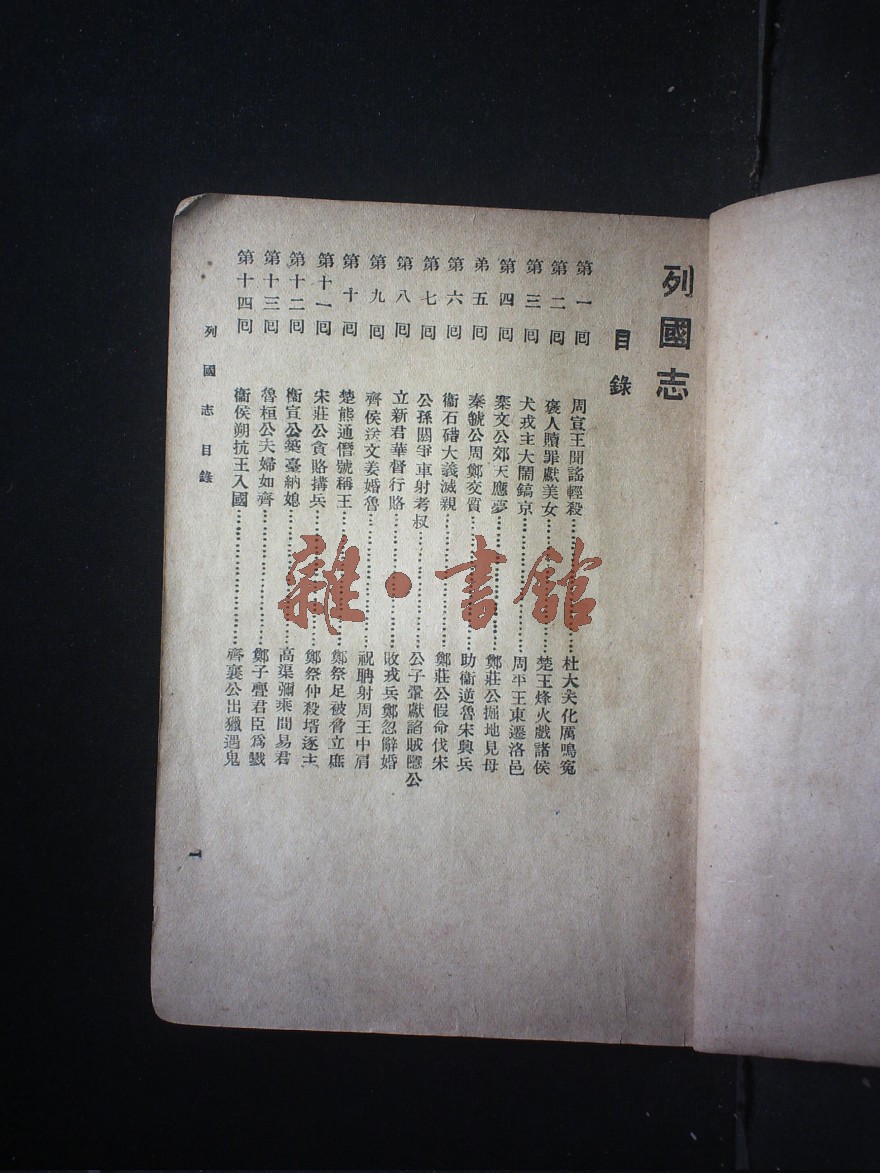 列國志
目錄
第一回 周宣王聞謠輕殺……杜大夫化厲鳴冤
第二回 褒人贖罪獻美女……楚王烽火戲諸侯
第三回 犬戎主大鬧鎬京……周平王東遷洛邑
第四回 秦文公郊天應夢……鄭莊公掘地見母
弟五回 秦虢公周鄭交質……助衞逆魯宋興兵
第六回 衞石碏大義滅親……鄭莊公假命伐宋
第七回 公孫閼爭車射考叔……公子翬獻諂賊隱公
第八回 立新君華督行賂……敗戎兵鄭忽辭婚
第九回 齊侯送文姜婚魯……祝聃射周王中肩
第十回 楚熊通僭號稱王……鄭祭足被脅立庶
第十一回 宋莊公貪賂搆兵……鄭祭仲殺壻逐主
第十二回 衞宣公築臺納媳……高渠彌乘間易君
第十三回 魯桓公夫婦如齊……鄭子亹君臣爲戮
第十四回 衞侯朔抗王入國……齊襄公出獵遇鬼
列國志目錄
1
雜·書館